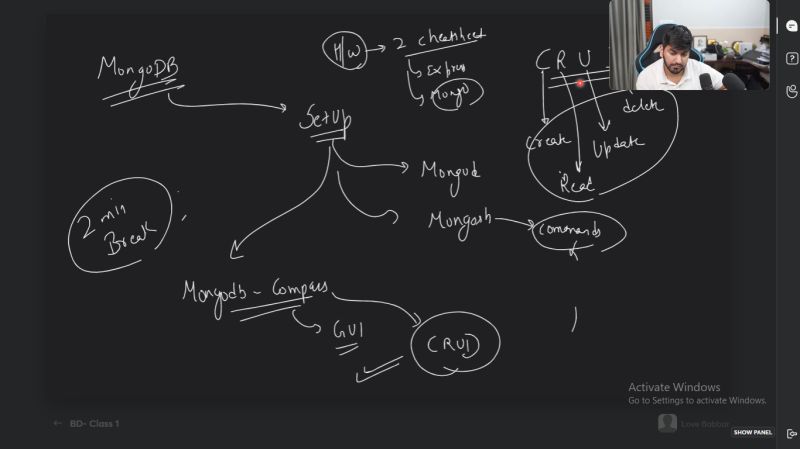 MongoDB
H/W → 2 cheatsheet
↳ Express
↳ Mongo
C R U
Create
Read
Update
delete
Setup
Mongod
Mongosh → Commands
2 min
Break
Mongodb - Compass
GUI
CRUD
Activate Windows
Go to Settings to activate Windows.
← BD- Class 1
Love Babbar
SHOW PANEL